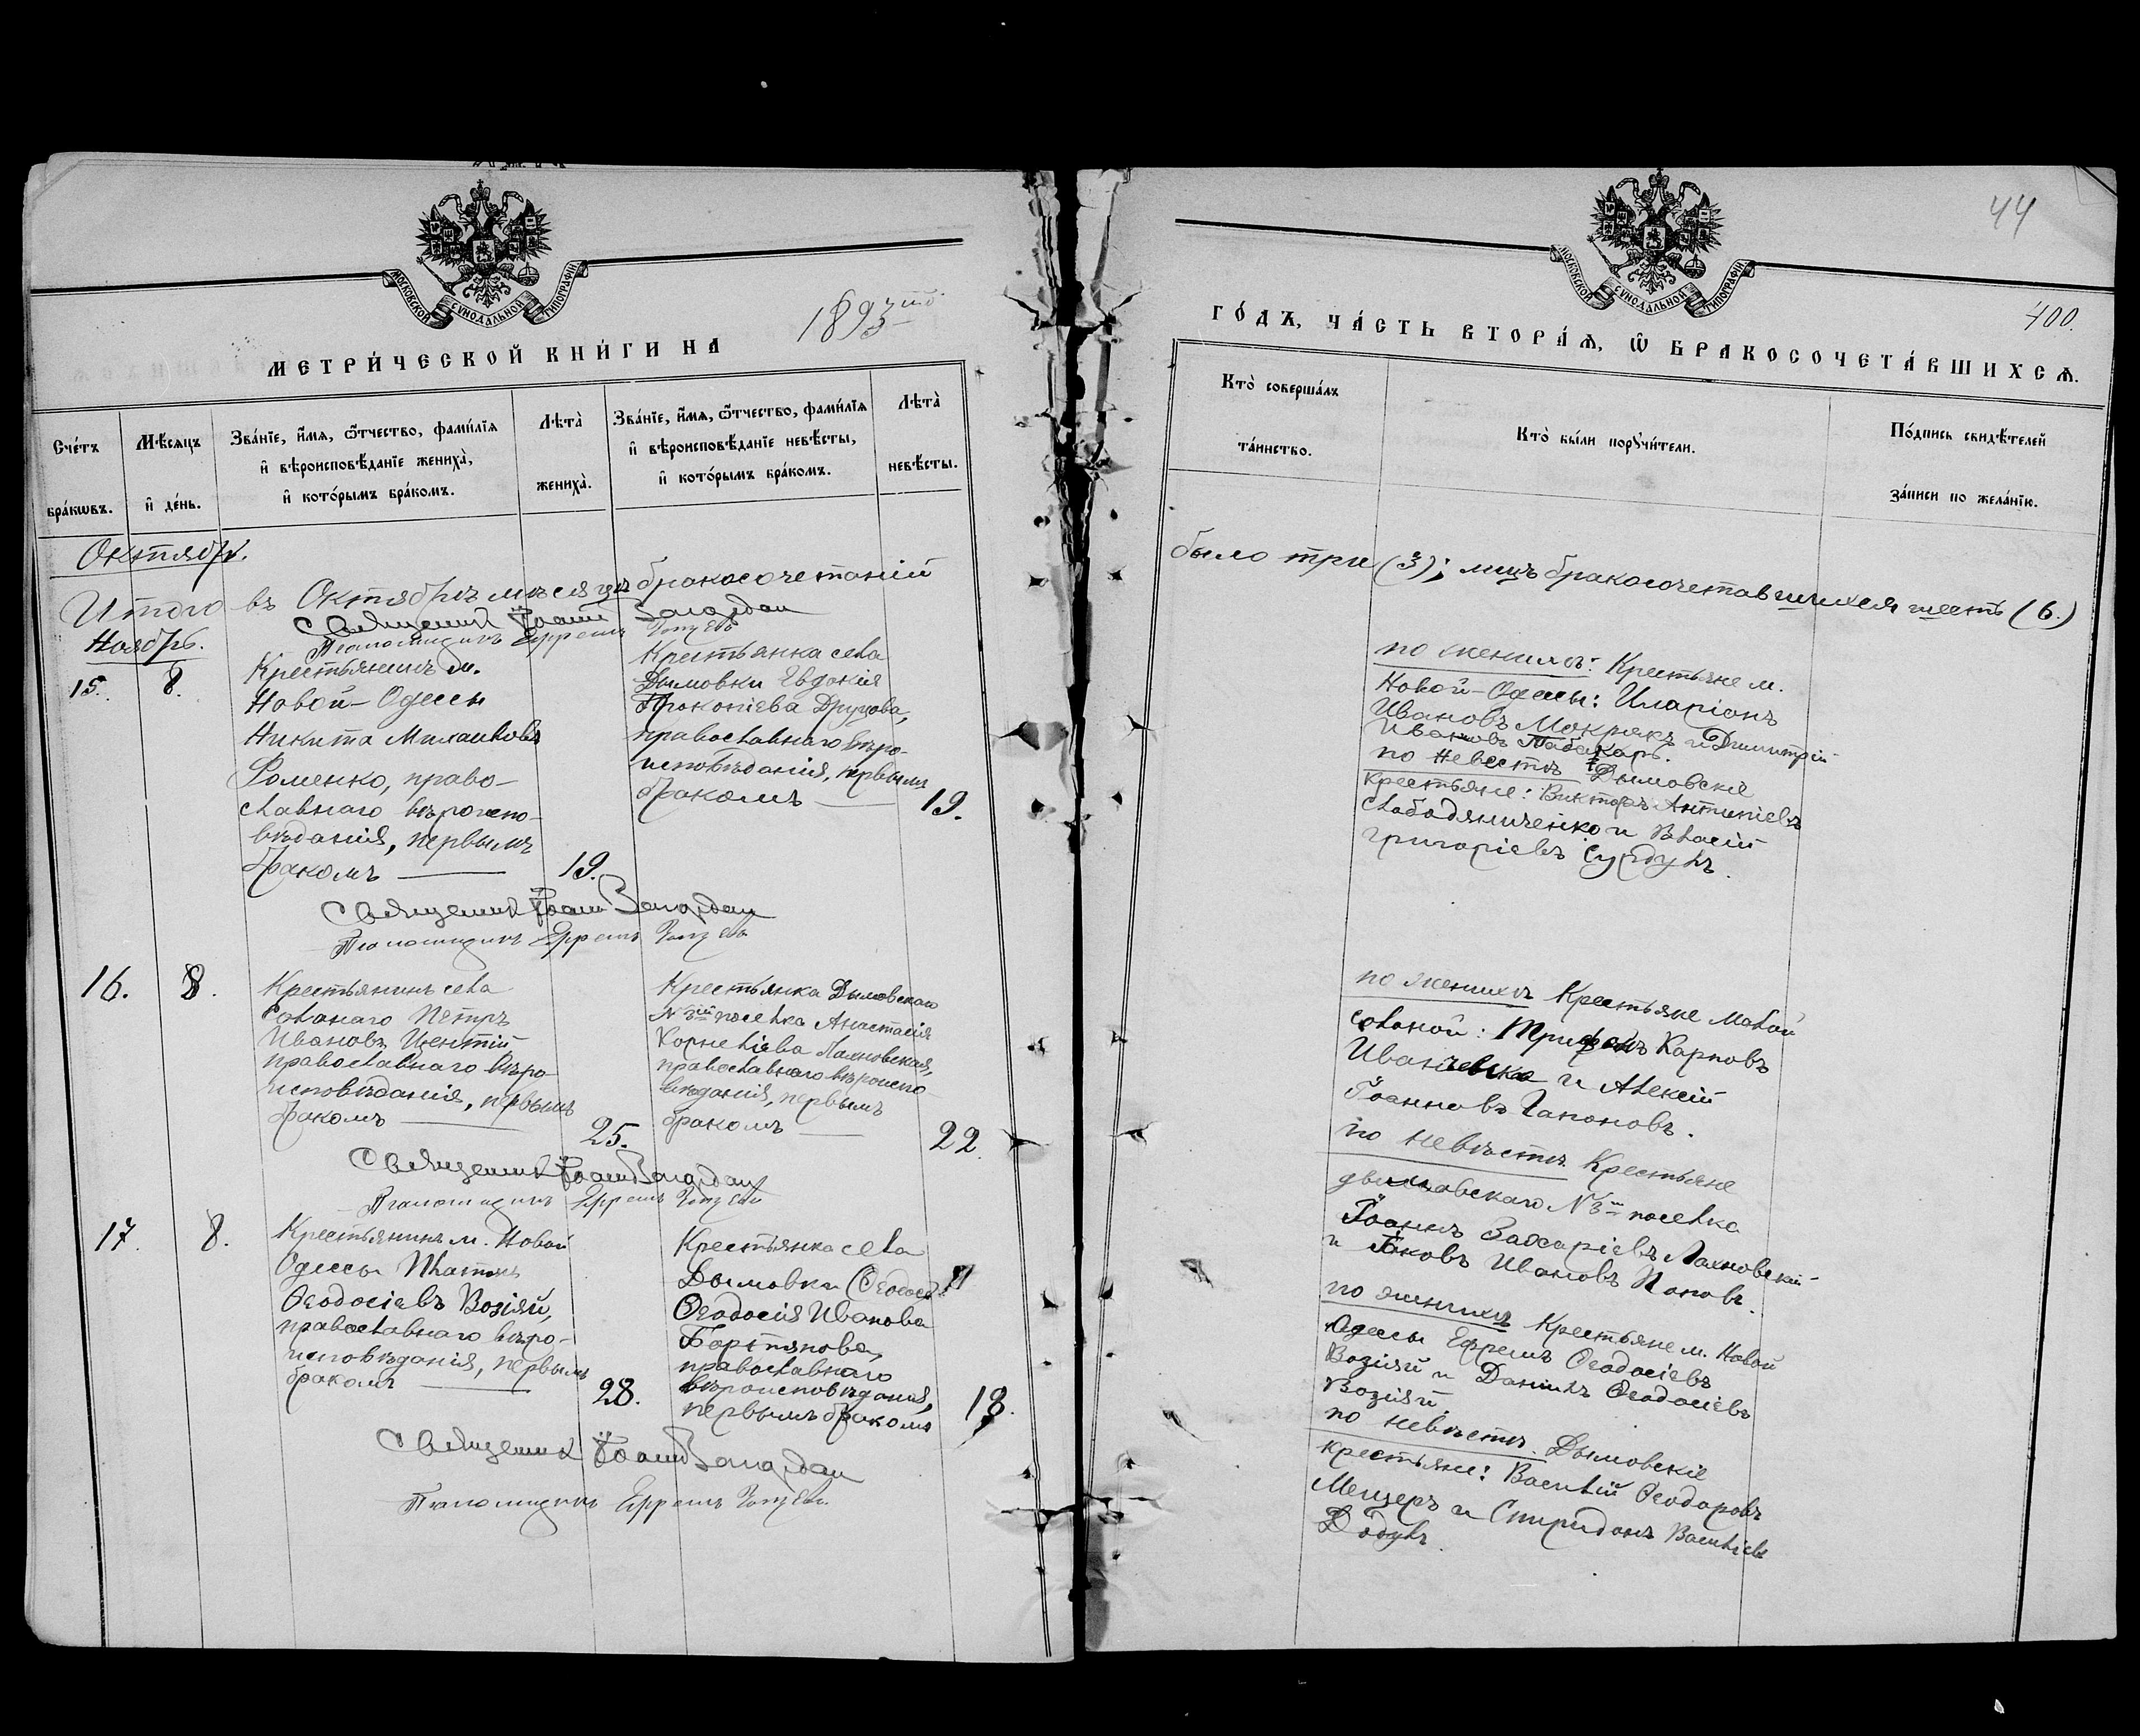 МОСКОВСКОЙ СѴНОДАЛЬНОЙ ТИПОГРАФІИ
МЕТРИ́ЧЕСКОЙ КНИ́ГИ НА 1893
Сче́тъ бра́кѡвъ.
Мѣ́сяцъ и҆ де́нь.
Зва́нїе, и҆́мѧ, ѻ҆́тчество, фамі́лїѧ
и҆ вѣроисповѣ́данїе жениха̀,
и҆ кото́рымъ бра́комъ.
Лѣ́та̀ жениха̀.
Зва́нїе, и҆́мѧ, ѻ҆́тчество, фамі́лїѧ
и҆ вѣроисповѣ́данїе невѣ́сты,
и҆ кото́рымъ бра́комъ.
Лѣ́та̀ невѣ́сты.
Октябрь.
Итого въ Октябрѣ мѣсяцѣ бракосочетаній
Священникъ Іоаннъ
Псаломщикъ Ефремъ
Ноябрь.
15. 8.
Крестьянинъ м.
Новой-Одессы
Никита Михаиловъ
Фоменко, право-
славнаго вѣроиспо-
вѣданія, первымъ
бракомъ
19.
Крестьянка села
Дымовки Евдокія
Прокопіева Друцова,
православнаго вѣро-
исповѣданія, первымъ
бракомъ
19.
Священникъ Іоаннъ
Псаломщикъ Ефремъ
16. 8.
Крестьянинъ села
Петръ
Ивановъ
православнаго вѣро-
исповѣданія, первымъ
бракомъ
25.
Крестьянка Дымовскаго
№ 3й поселка Анастасія
Корнеліева Лахновская,
православнаго вѣроиспо-
вѣданія, первымъ
бракомъ
22.
Священникъ Іоаннъ
Псаломщикъ Ефремъ
17. 8.
Крестьянинъ м. Новой
Одессы Платонъ
Ѳеодосіевъ Возіяй,
православнаго вѣро-
исповѣданія, первымъ
бракомъ
28.
Крестьянка села
Дымовки
Ѳеодосія Иванова
православнаго
вѣроисповѣданія,
первымъ бракомъ
18.
Священникъ Іоаннъ
Псаломщикъ Ефремъ
44
МОСКОВСКОЙ СѴНОДАЛЬНОЙ ТИПОГРАФІИ
400.
ГО́ДЪ, ЧА́СТЬ ВТОРА́Ѧ, Ѽ БРАКОСОЧЕТА́ВШИХСѦ.
Кто̀ соверша́лъ
та́инство.
Кто̀ бы́ли порꙋчи́тели.
По́дпись свидѣ́телей
за́писи по жела́нїю.
было три (3); лицъ бракосочетавшихся шесть (6.)
по женихѣ: Крестьяне м.
Новой-Одессы: Иларіонъ
Ивановъ Мокрякъ и Димитрій
Ивановъ
по невестѣ Дымовскіе
крестьяне: Викторъ Антипіевъ
Слабодяниченко и Власій
Григоріевъ Сурдулъ.
по женихѣ Крестьяне Малой
Трифонъ Карповъ
и Алексій
Іоанновъ Гапоновъ.
по невѣстѣ Крестьяне
№ 3й поселка
Іоаннъ Захаріевъ Лахновскій
и Іаковъ Ивановъ Поповъ.
по женихѣ Крестьяне м. Новой
Одессы Ефремъ Ѳеодосіевъ
Возіяй и Даніилъ Ѳеодосіевъ
Возіяй.
по невѣстѣ. Дымовскіе
крестьяне: Василій Ѳеодоровъ
Мещеръ и Спиридонъ Василіевъ